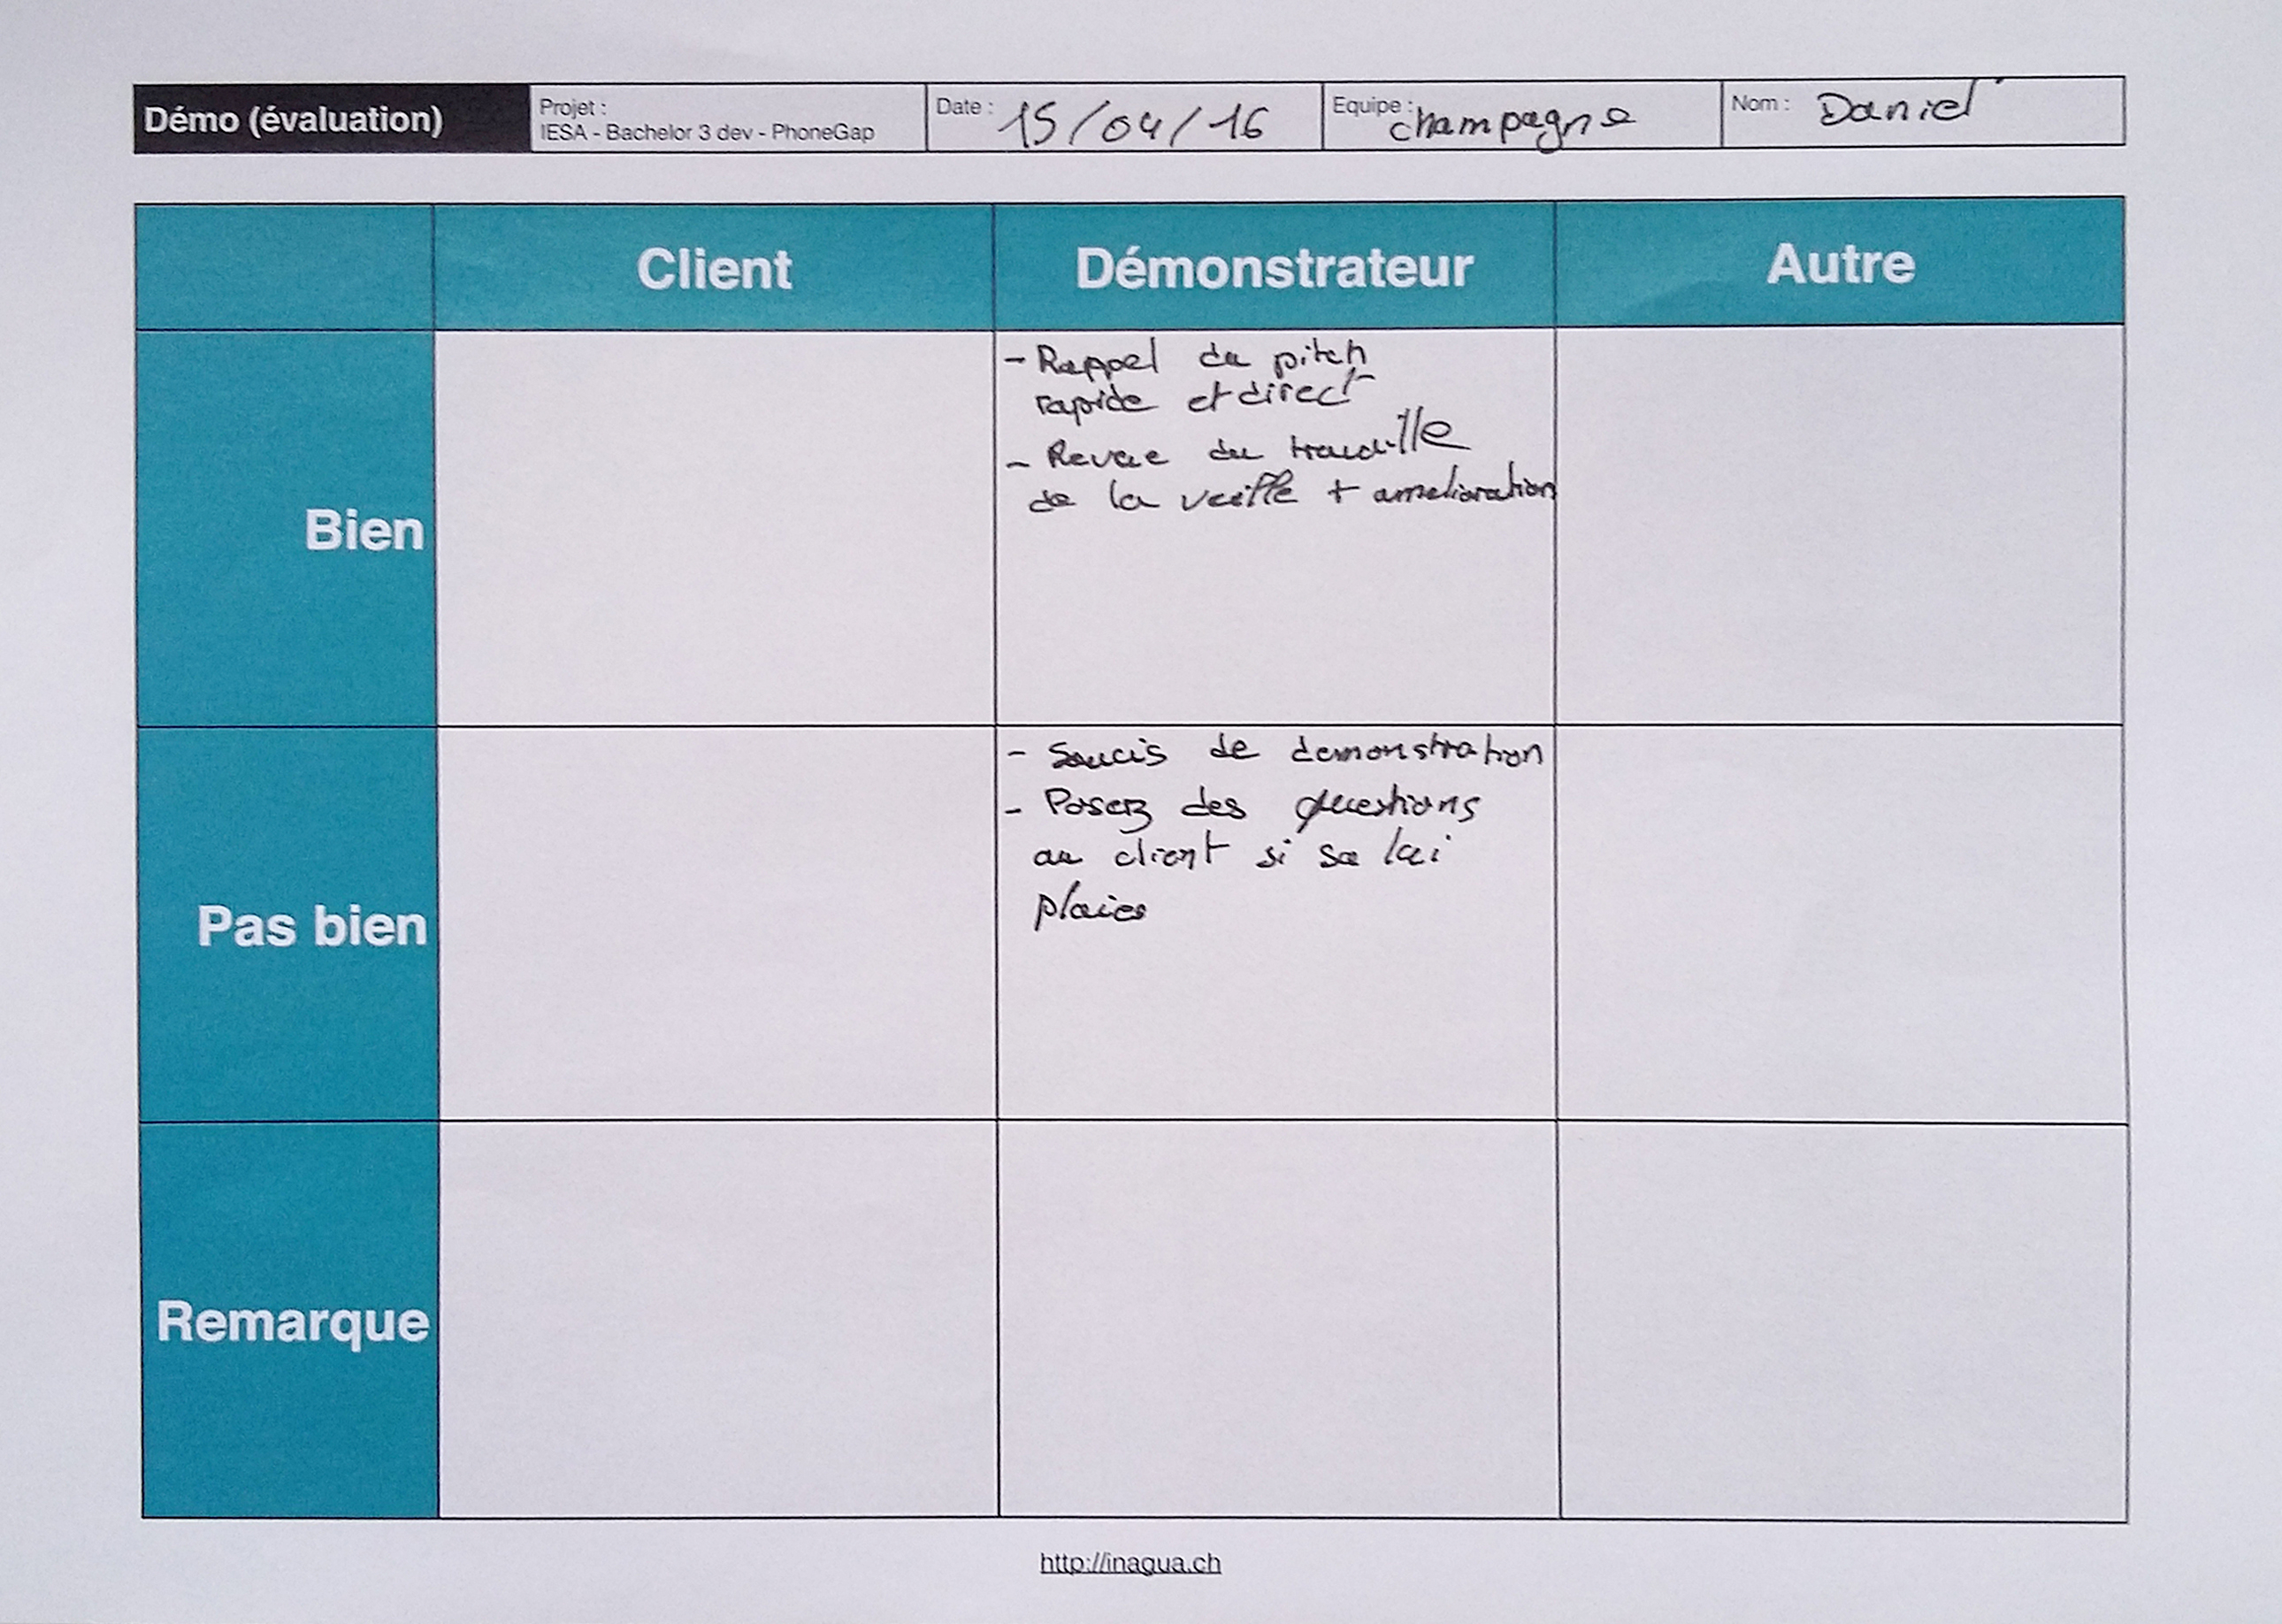 Démo (évaluation)
Projet :
IESA - Bachelor 3 dev - PhoneGap
Date : 15/04/16
Equipe : champagne
Nom : Daniel
Client
Démonstrateur
Autre
Bien
- Rappel du pitch
rapide et direct
- Revue du travaille
de la veille + amelioration
Pas bien
- Soucis de demonstration
- Posez des questions
au client si sa lui
Remarque
http://inagua.ch